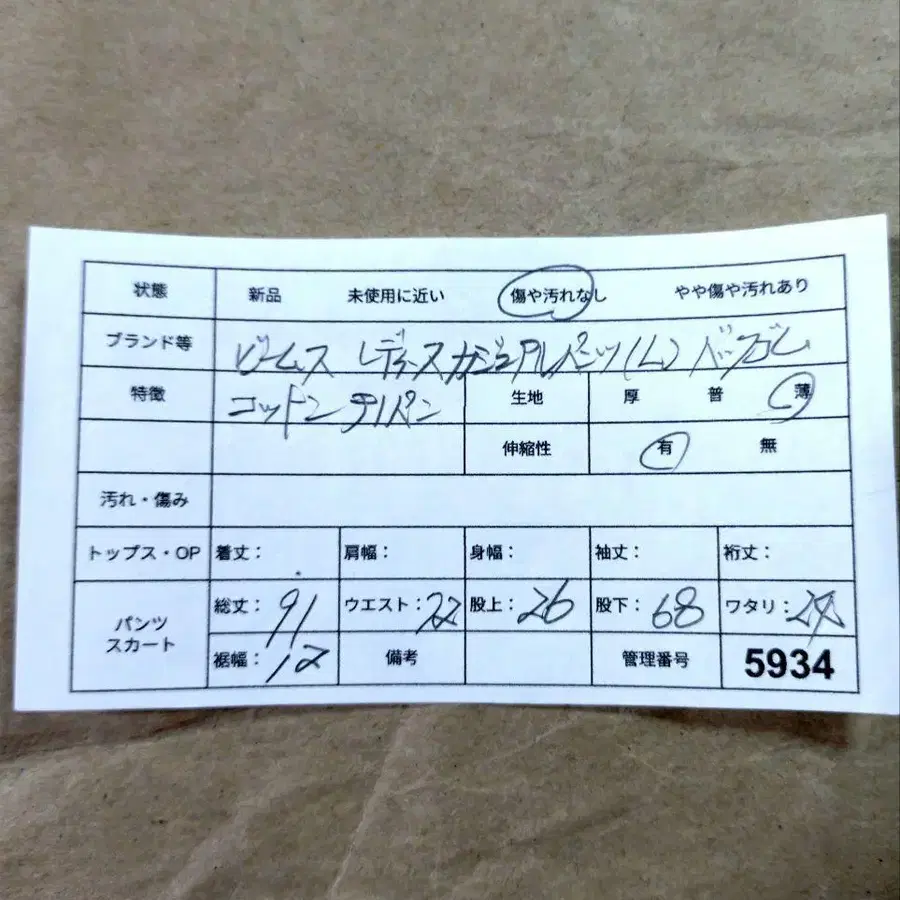 状態 新品 未使用に近い 傷や汚れなし やや傷や汚れあり
ブランド等 ビームス レディースカジュアルパンツ(L) バックゴム
特徴 コットン チノパン 生地 厚 普 薄
伸縮性 有 無
汚れ・傷み
トップス・OP 着丈: 肩幅: 身幅: 袖丈: 裄丈:
パンツ スカート 総丈: 91 ウエスト: 股上: 26 股下: 68 ワタリ:
裾幅: 12 備考 管理番号 5934